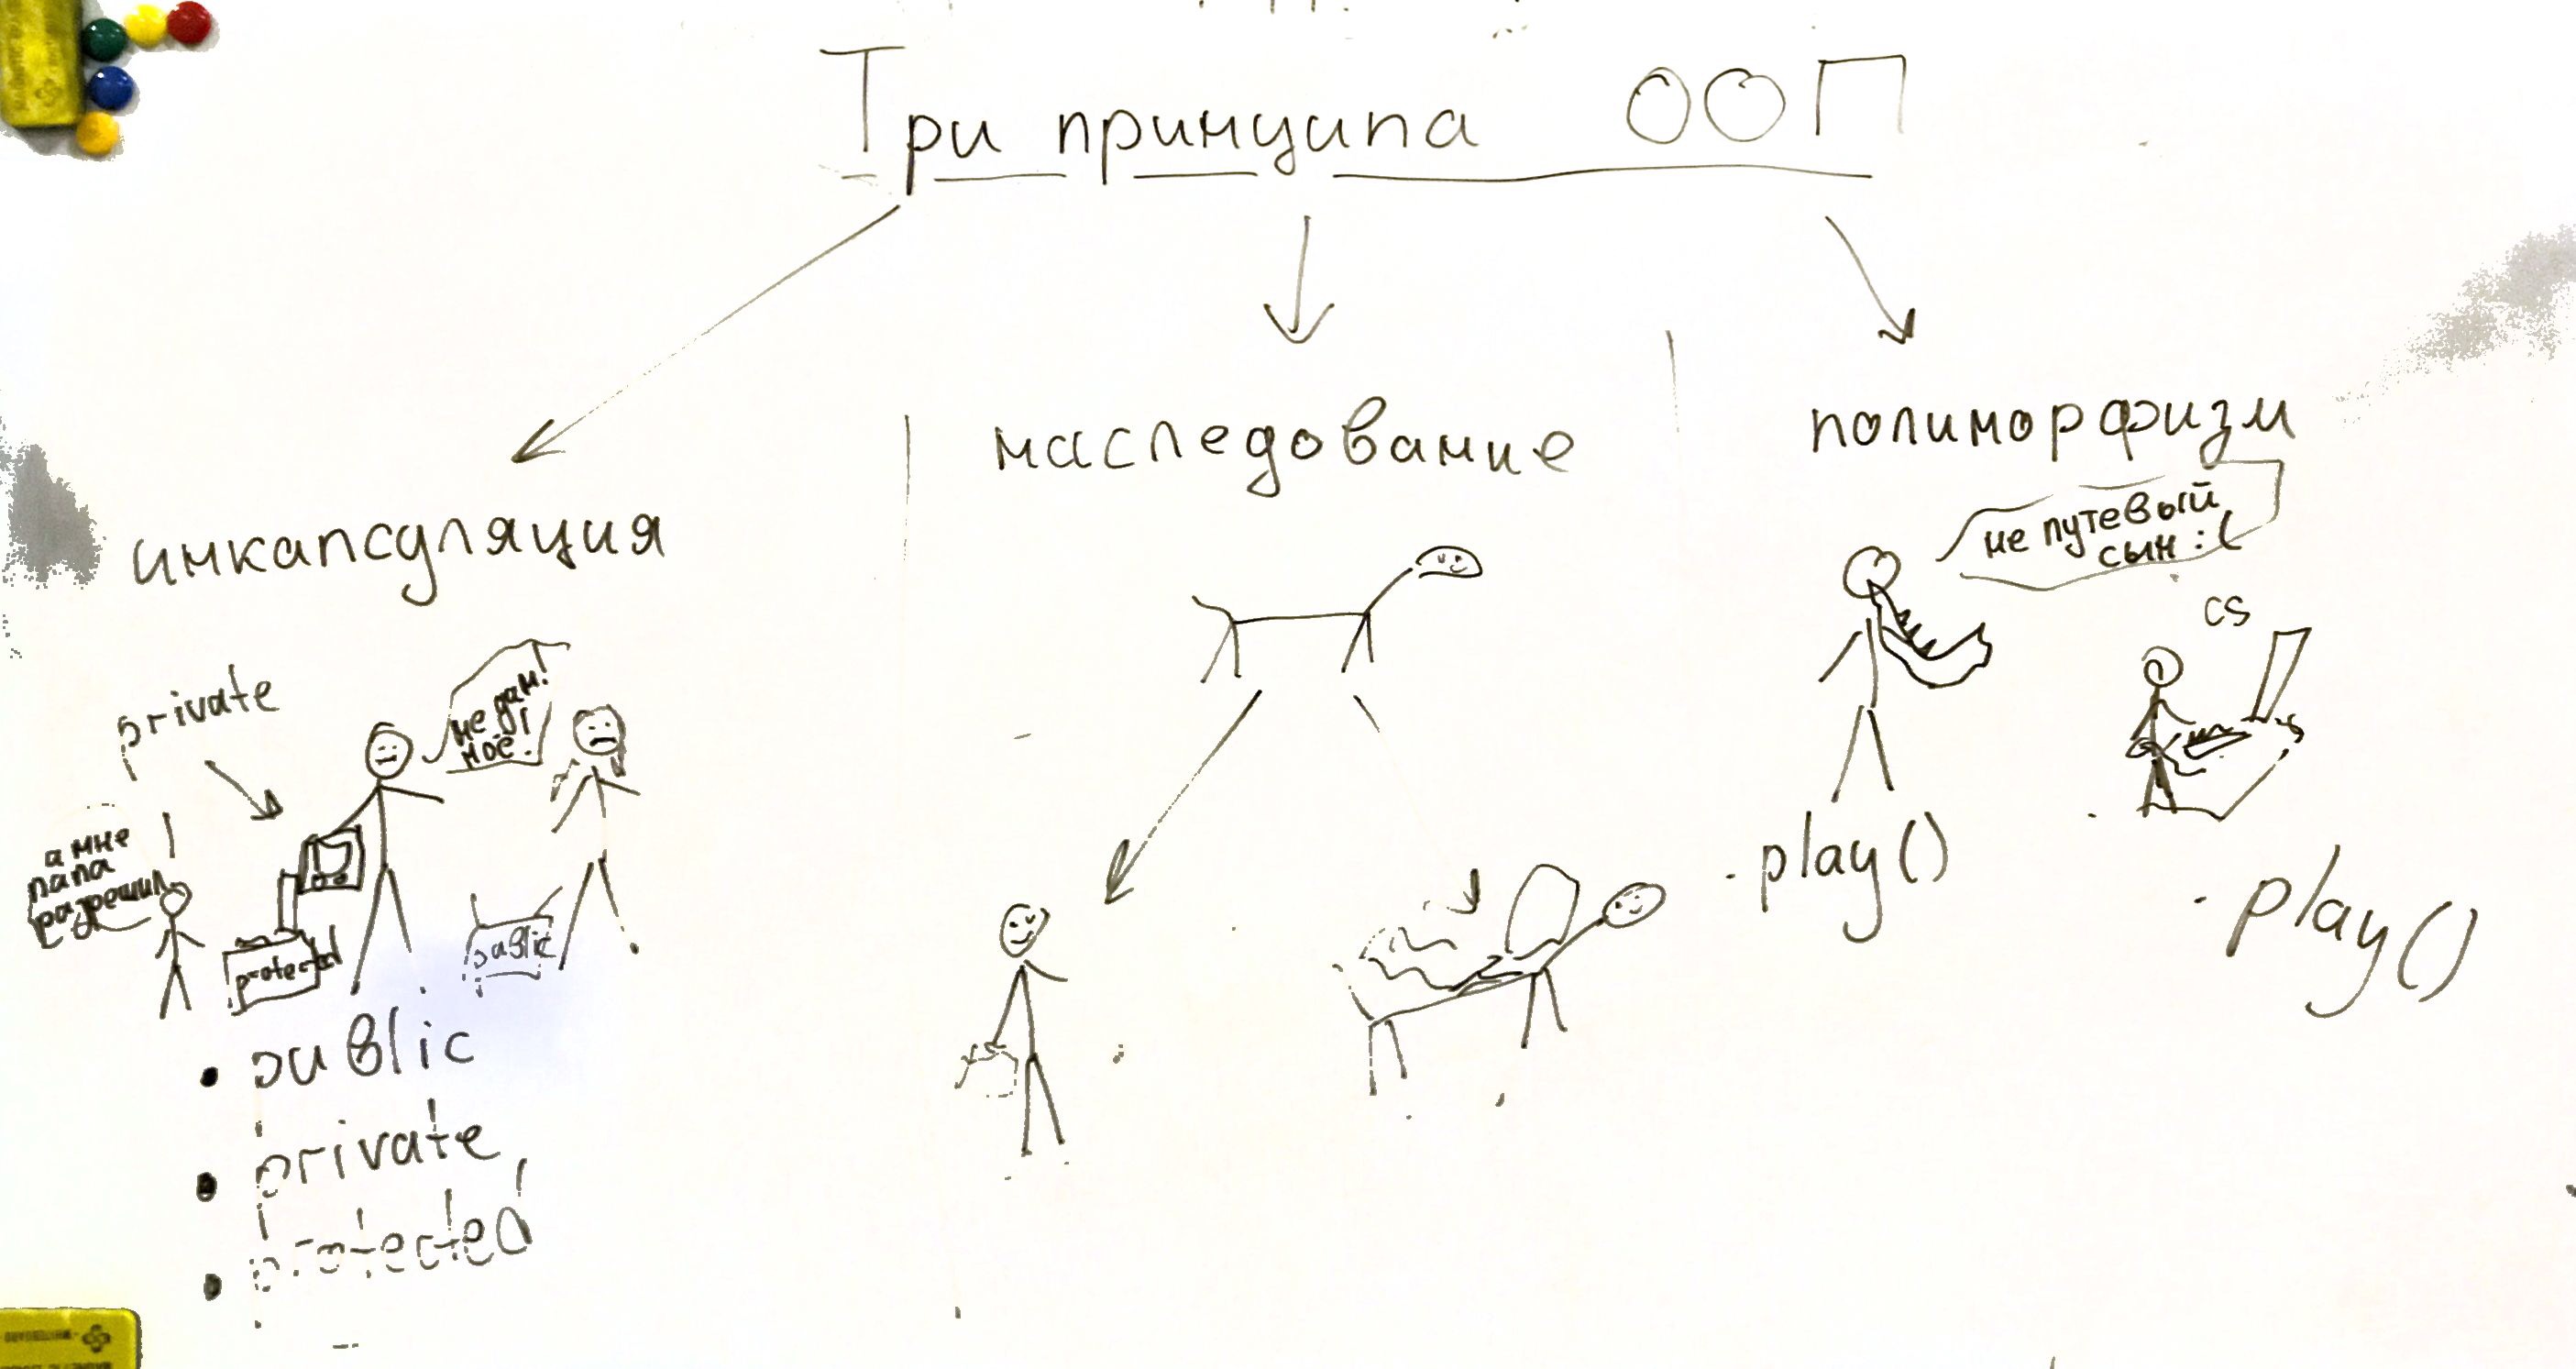 Три принципа ООП
инкапсуляция
наследование
полиморфизм
private
не дам!
моё!
а мне
папа
разрешил
protected
public
• public
• private
• protected
не путевый
сын :(
CS
.play()
.play()